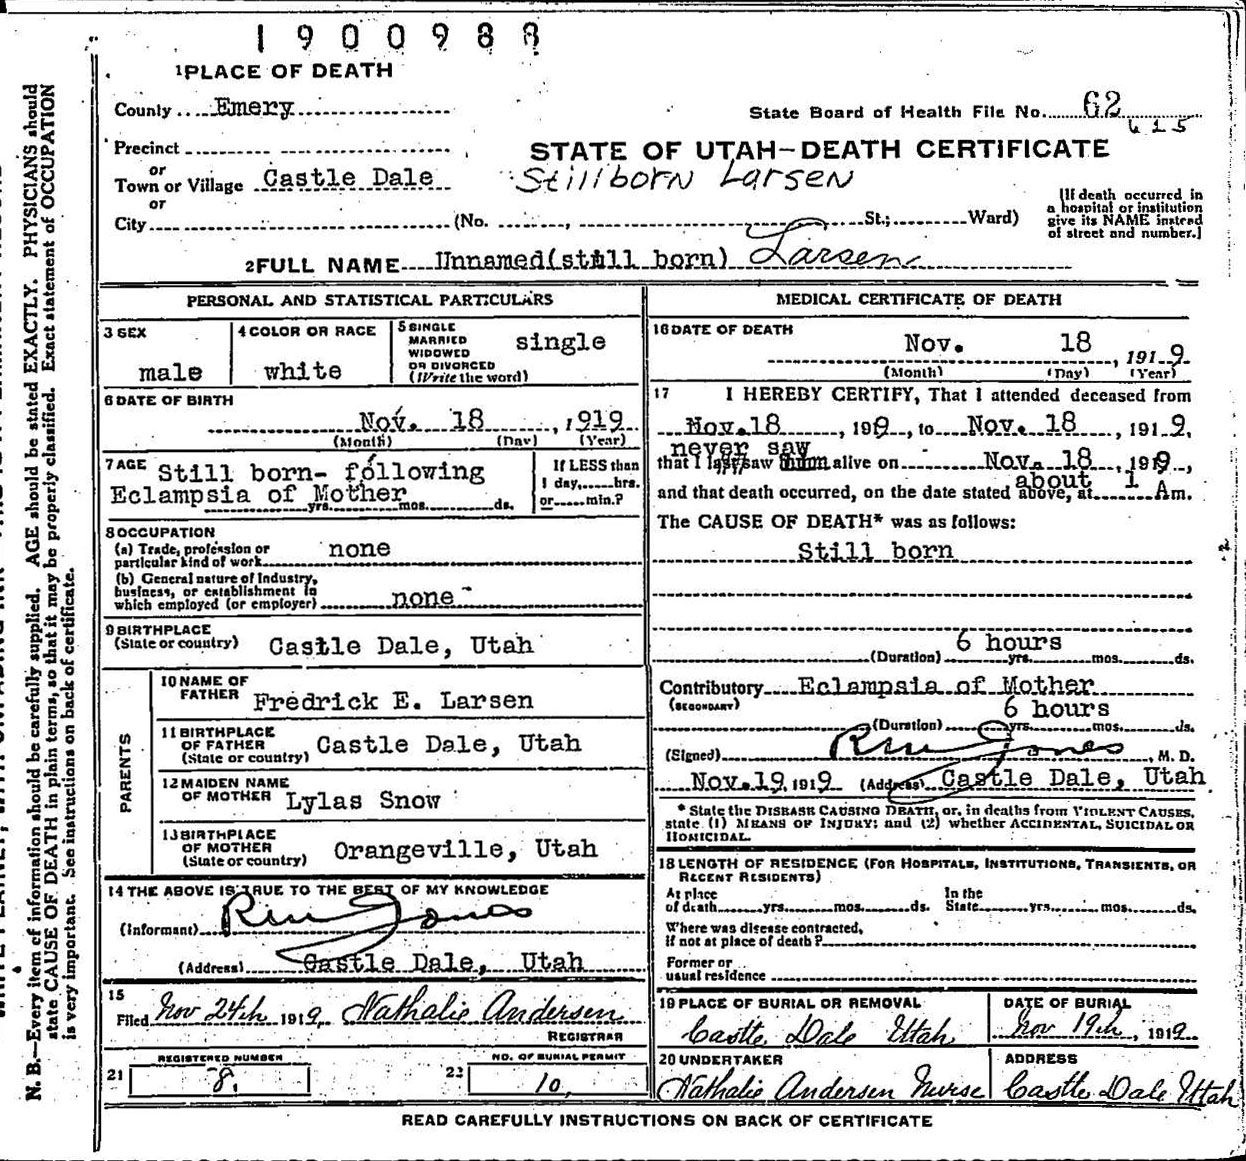 1900988
1 PLACE OF DEATH
County Emery
State Board of Health File No. 62
615
Precinct
or
Town or Village Castle Dale
or
City (No. , St.; Ward)
STATE OF UTAH-DEATH CERTIFICATE
Stillborn Larsen
[If death occurred in
a hospital or institution
give its NAME instead
of street and number.]
2 FULL NAME Unnamed(still born) Larsen
PERSONAL AND STATISTICAL PARTICULARS
3 SEX
male
4 COLOR OR RACE
white
5 SINGLE
MARRIED
WIDOWED
OR DIVORCED
(Write the word)
single
6 DATE OF BIRTH
Nov. 18, 1919
(Month) (Day) (Year)
7 AGE Still born- following
Eclampsia of Mother
yrs. mos. ds.
If LESS than
1 day, hrs.
or min.?
8 OCCUPATION
(a) Trade, profession or
particular kind of work none
(b) General nature of Industry,
business, or establishment in
which employed (or employer) none
9 BIRTHPLACE
(State or country) Castle Dale, Utah
PARENTS
10 NAME OF
FATHER Fredrick E. Larsen
11 BIRTHPLACE
OF FATHER
(State or country) Castle Dale, Utah
12 MAIDEN NAME
OF MOTHER Lylas Snow
13 BIRTHPLACE
OF MOTHER
(State or country) Orangeville, Utah
14 THE ABOVE IS TRUE TO THE BEST OF MY KNOWLEDGE
(Informant) Jones
(Address) Castle Dale, Utah
15
Filed Nov 24th 1919, Nathalie Andersen
REGISTRAR
REGISTERED NUMBER
21 8.
NO. OF BURIAL PERMIT
22 10.
MEDICAL CERTIFICATE OF DEATH
16 DATE OF DEATH
Nov. 18, 1919
(Month) (Day) (Year)
17 I HEREBY CERTIFY, That I attended deceased from
Nov.18, 1919, to Nov. 18, 1919,
never saw
that I last saw alive on Nov. 18, 1919,
about 1
and that death occurred, on the date stated above, at Am.
The CAUSE OF DEATH* was as follows:
Still born
6 hours
(Duration) yrs. mos. ds.
Contributory Eclampsia of Mother
(SECONDARY)
6 hours
(Duration) yrs. mos. ds.
(Signed) Jones, M. D.
Nov.19, 1919 (Address) Castle Dale, Utah
* State the DISEASE CAUSING DEATH, or, in deaths from VIOLENT CAUSES,
state (1) MEANS OF INJURY; and (2) whether ACCIDENTAL, SUICIDAL OR
HOMICIDAL.
18 LENGTH OF RESIDENCE (FOR HOSPITALS, INSTITUTIONS, TRANSIENTS, OR
RECENT RESIDENTS)
At place
of death yrs. mos. ds.
In the
State yrs. mos. ds.
Where was disease contracted,
if not at place of death?
Former or
usual residence
19 PLACE OF BURIAL OR REMOVAL
Castle Dale Utah
DATE OF BURIAL
Nov 19th, 1919
20 UNDERTAKER
Nathalie Andersen Nurse
ADDRESS
Castle Dale Utah
READ CAREFULLY INSTRUCTIONS ON BACK OF CERTIFICATE
N. B.—Every item of information should be carefully supplied. AGE should be stated EXACTLY. PHYSICIANS should
state CAUSE OF DEATH in plain terms, so that it may be properly classified. Exact statement of OCCUPATION
is very important. See instructions on back of certificate.